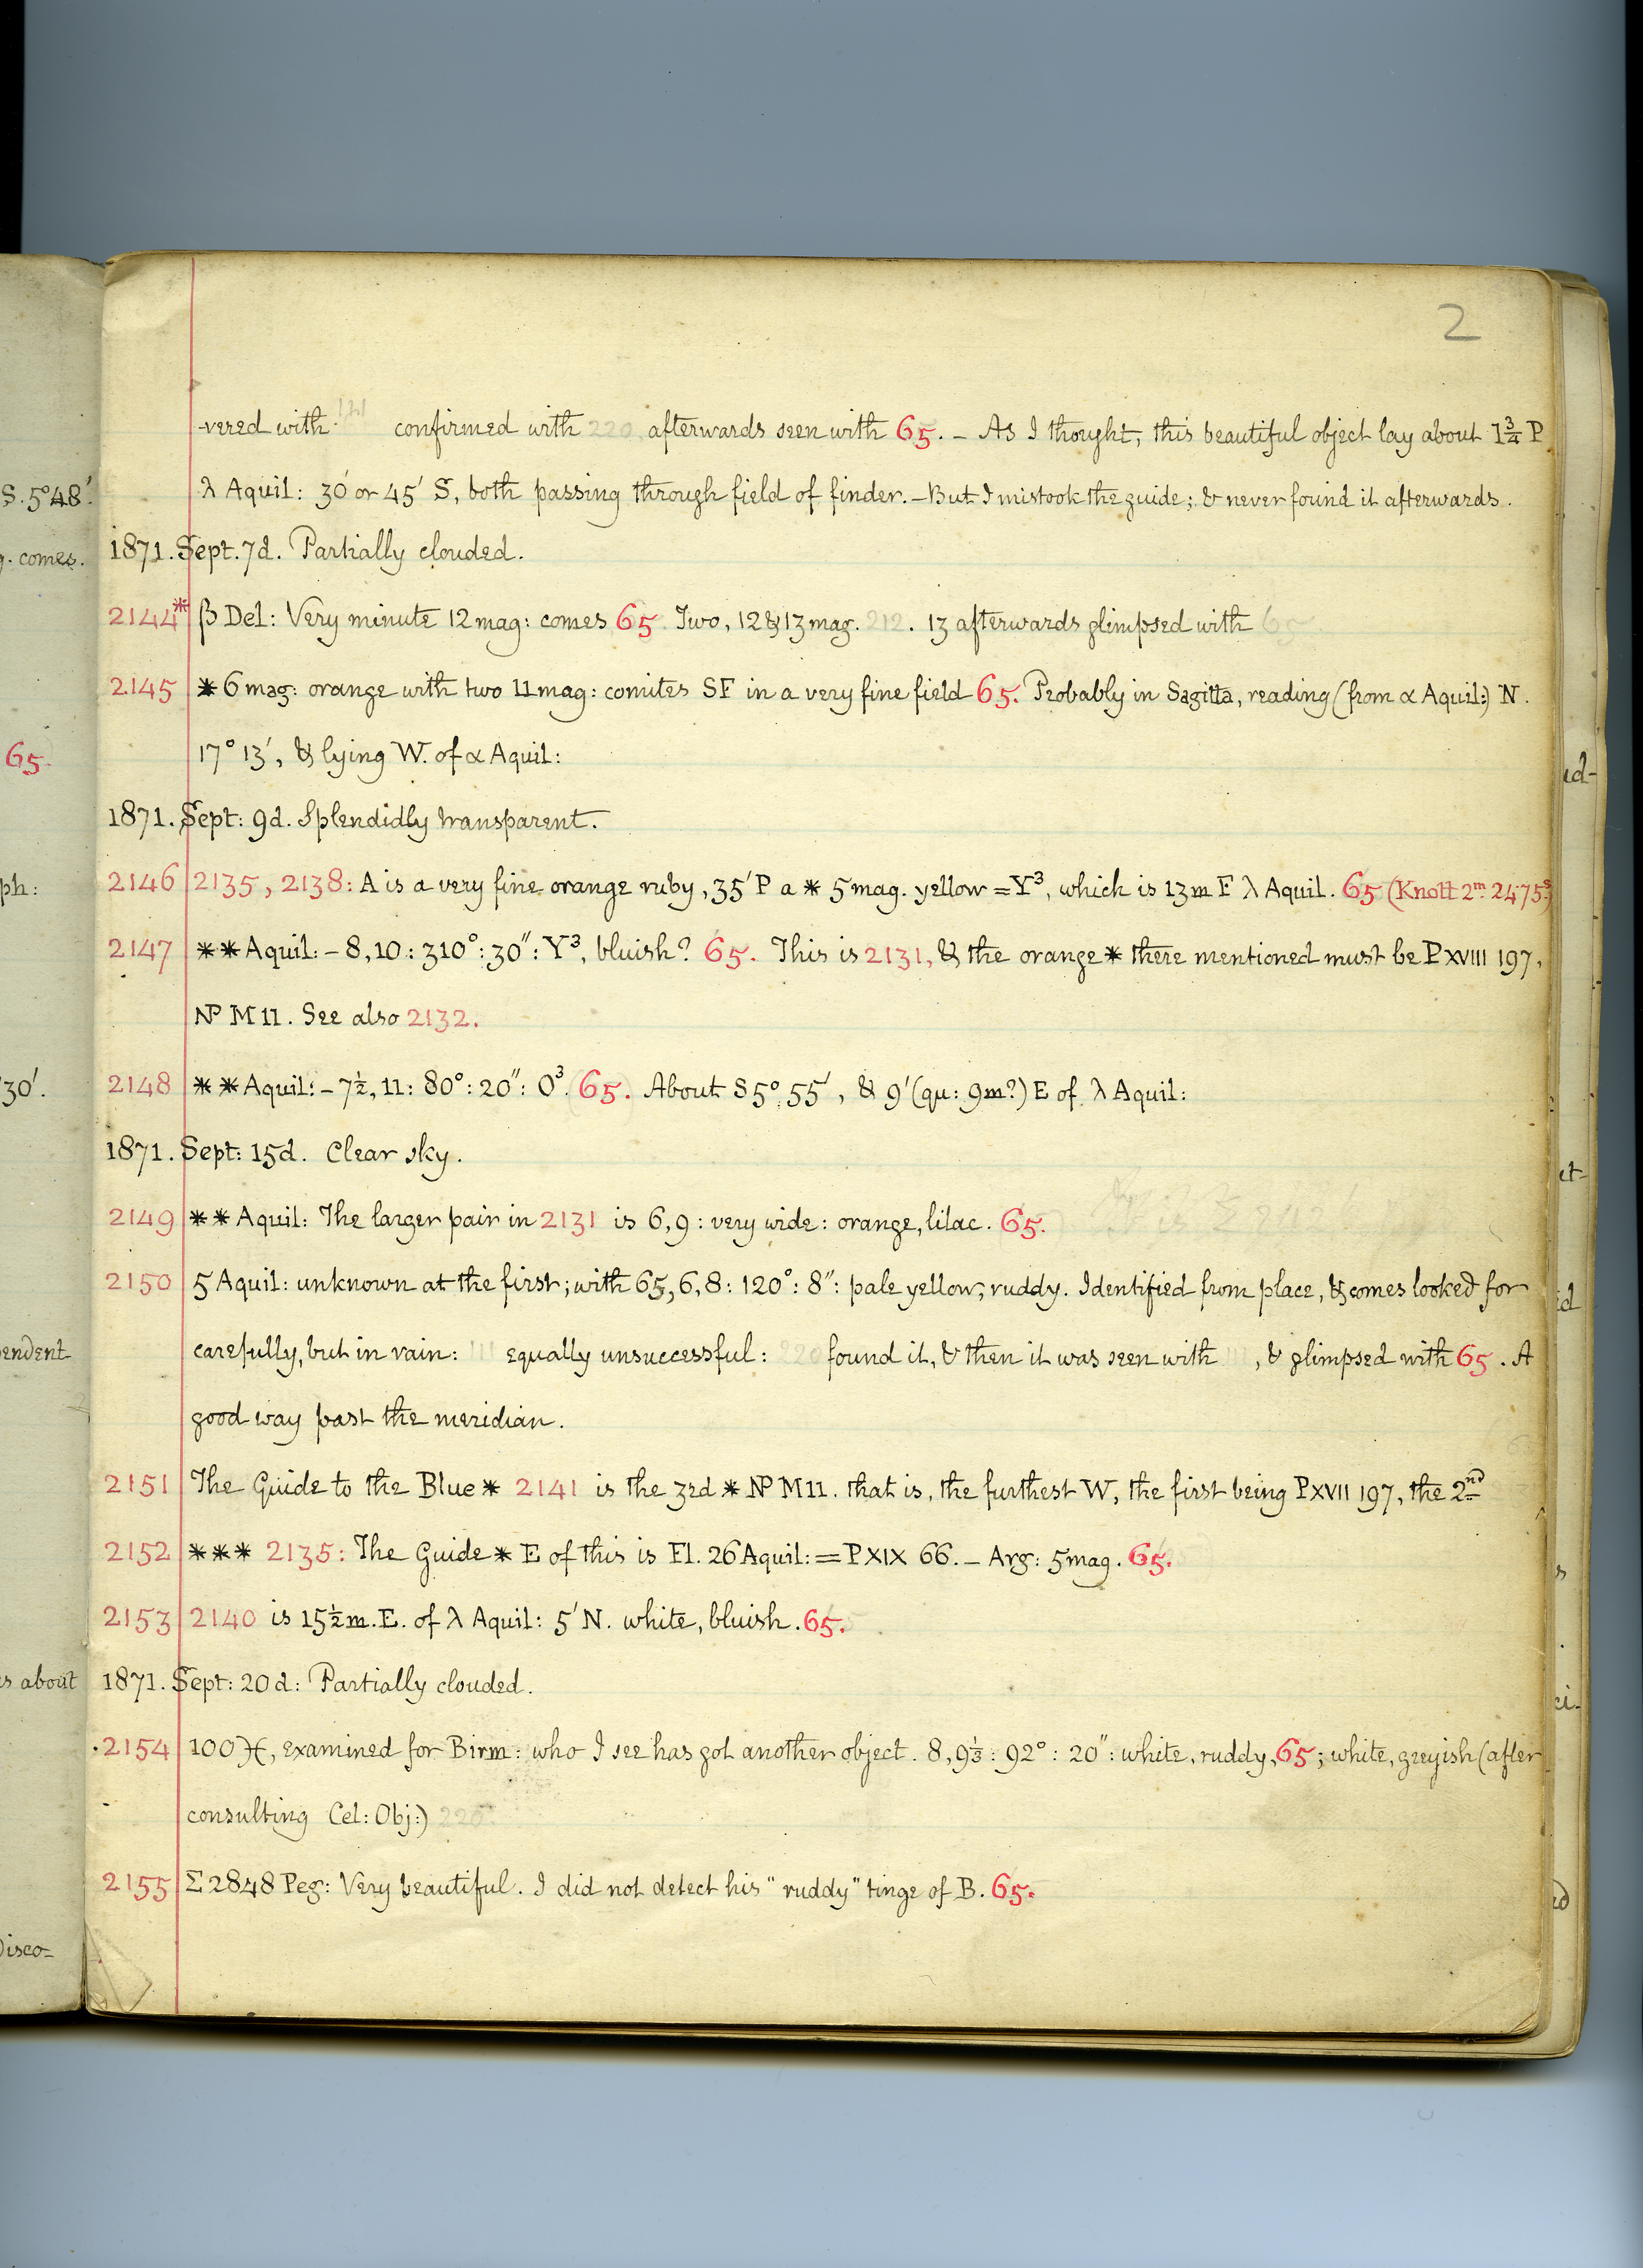 2
-vered with 111 confirmed with 220, afterwards seen with 65. – As I thought, this beautiful object lay about 1¾ P
λ Aquil: 30′ or 45′ S, both passing through field of finder. – But I mistook the guide; & never found it afterwards.
1871. Sept. 7d. Partially clouded.
2144* β Del: Very minute 12 mag: comes 65. Two, 12 & 13 mag. 212. 13 afterwards glimpsed with 65
2145 * 6 mag: orange with two 11 mag: comites SF in a very fine field 65. Probably in Sagitta, reading (from α Aquil:) N.
17° 13′, & lying W. of α Aquil:
1871. Sept: 9d. Splendidly transparent.
2146 2135, 2138: A is a very fine orange ruby, 35′ P a * 5 mag. yellow = Y³, which is 13m F λ Aquil. 65 (Knott 2m 24.75s)
2147 ** Aquil: – 8, 10: 310°: 30″: Y³, bluish? 65. This is 2131, & the orange * there mentioned must be P XVIII 197,
NP M 11. See also 2132.
2148 ** Aquil: – 7½, 11: 80°: 20″: O³. 65. About S 5° 55′, & 9′ (qu: 9m?) E of λ Aquil:
1871. Sept: 15d. Clear sky.
2149 ** Aquil: The larger pair in 2131 is 6, 9: very wide: orange, lilac. 65.
2150 5 Aquil: unknown at the first; with 65, 6, 8: 120°: 8″: pale yellow, ruddy. Identified from place, & comes looked for
carefully, but in vain: 111 equally unsuccessful: 220 found it, & then it was seen with 111, & glimpsed with 65. A
good way past the meridian.
2151 The Guide to the Blue * 2141 is the 3rd * NP M 11. that is, the furthest W, the first being P XVII 197, the 2nd
2152 *** 2135: The Guide * E of this is Fl. 26 Aquil: = P XIX 66. – Arg: 5 mag. 65.
2153 2140 is 15½m. E. of λ Aquil: 5′ N. white, bluish. 65.
1871. Sept: 20d: Partially clouded.
2154 100 ♓, examined for Birm: who I see has got another object. 8, 9⅓: 92°: 20″: white, ruddy, 65; white, greyish (after
consulting Cel: Obj:) 220.
2155 Σ 2848 Peg: Very beautiful. I did not detect his "ruddy" tinge of B. 65.
S. 5° 48′.
comes.
65.
ph:
30′.
endent
s about
Disco-